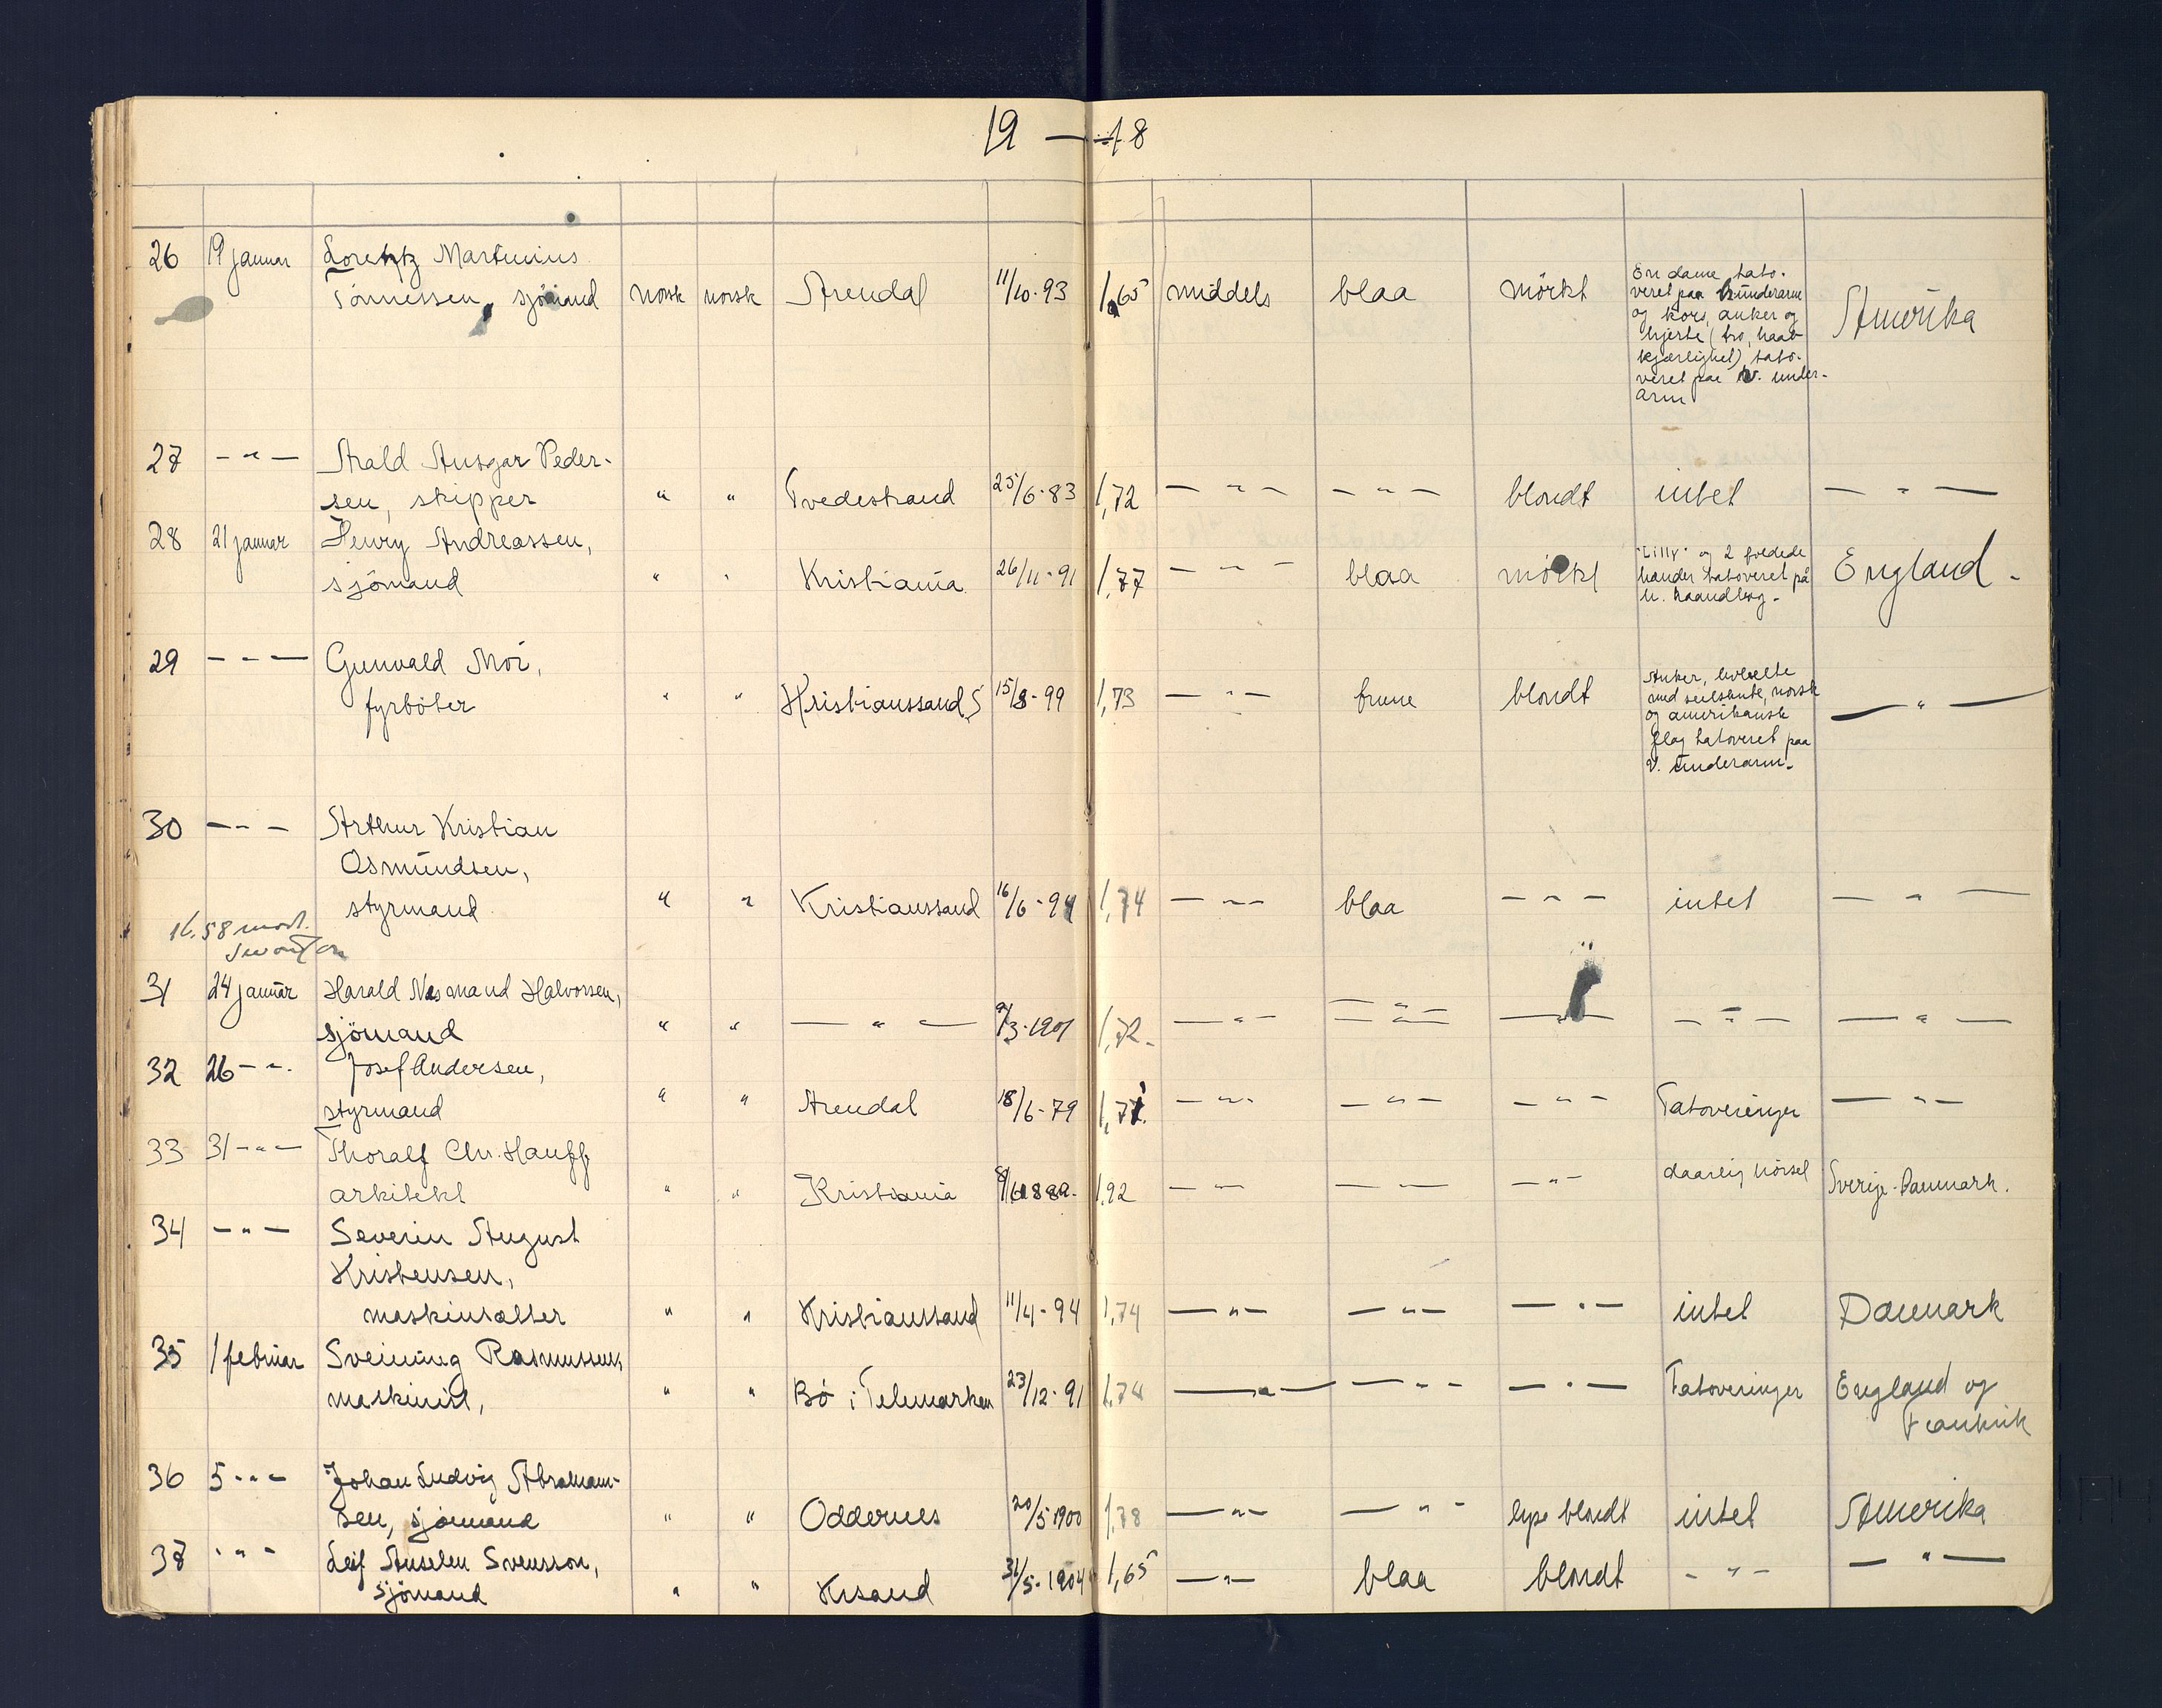 19 — 18
26 19 januar Lorentz Martinius
Tönnessen, sjömand norsk norsk Arendal 11/10-93 1,65 middels blaa mörkt Amerika
En dame tato-
veret paa h. underarm
og kors, anker og
hjerte (tro, haab
kjærlighet) tato-
veret paa v. under-
arm
27 — " — Arald Ansgar Peder-
sen, skipper " " Tvedestrand 25/6-83 1,72 — " — — " — blondt intet — " —
28 21 januar Henry Andreassen,
sjömand " " Kristiania 26/11-91 1,77 — " — blaa mörkt England -
"Lilly" og 2 foldede
hænder tatoveret på
h. haandbag -
29 — " — Gunvald Moi,
fyrböter " " Kristianssand S 15/8-99 1,73 — " — brune blondt — " —
Anker,
med seilskute, norsk
og amerikansk
flag tatoveret paa
v. underarm -
30 — " — Arthur Kristian
Osmundsen,
styrmand " " Kristianssand 16/6-94 1,74 — " — blaa — " — intet — " —
31 24 januar Harald Halvorsen,
sjömand " " — " — /3-1901 1,72 — " — — " — — " — — " — — " —
32 26 — " — Josef Andersen,
styrmand " " Arendal 18/6-79 — " — — " — — " — Tatoveringer — " —
33 31 — " — Thoralf Chr. Hauff
arkitekt " " Kristiania 1,92 — " — — " — — " — daarlig hörsel Sverige - Danmark.
34 — " — Severin August
Kristensen,
maskinsætter " " Kristianssand 11/4-94 1,74 — " — — " — — " — intet Danmark
35 1 februar Sveining Rasmussen,
maskinist, " " Bö i Telemarken 23/12-91 1,74 — " — — " — — " — Tatoveringer England og
Frankrik
36 5 — " — Johan Ludvig Abraham-
sen, sjömand " " Oddernes 20/5 1900 1,78 — " — — " — lyse blondt intet Amerika
37 — " — Leif Anselm Svensson,
sjömand " " Krsand 31/5-1904 1,65 — " — blaa blondt — " — — " —